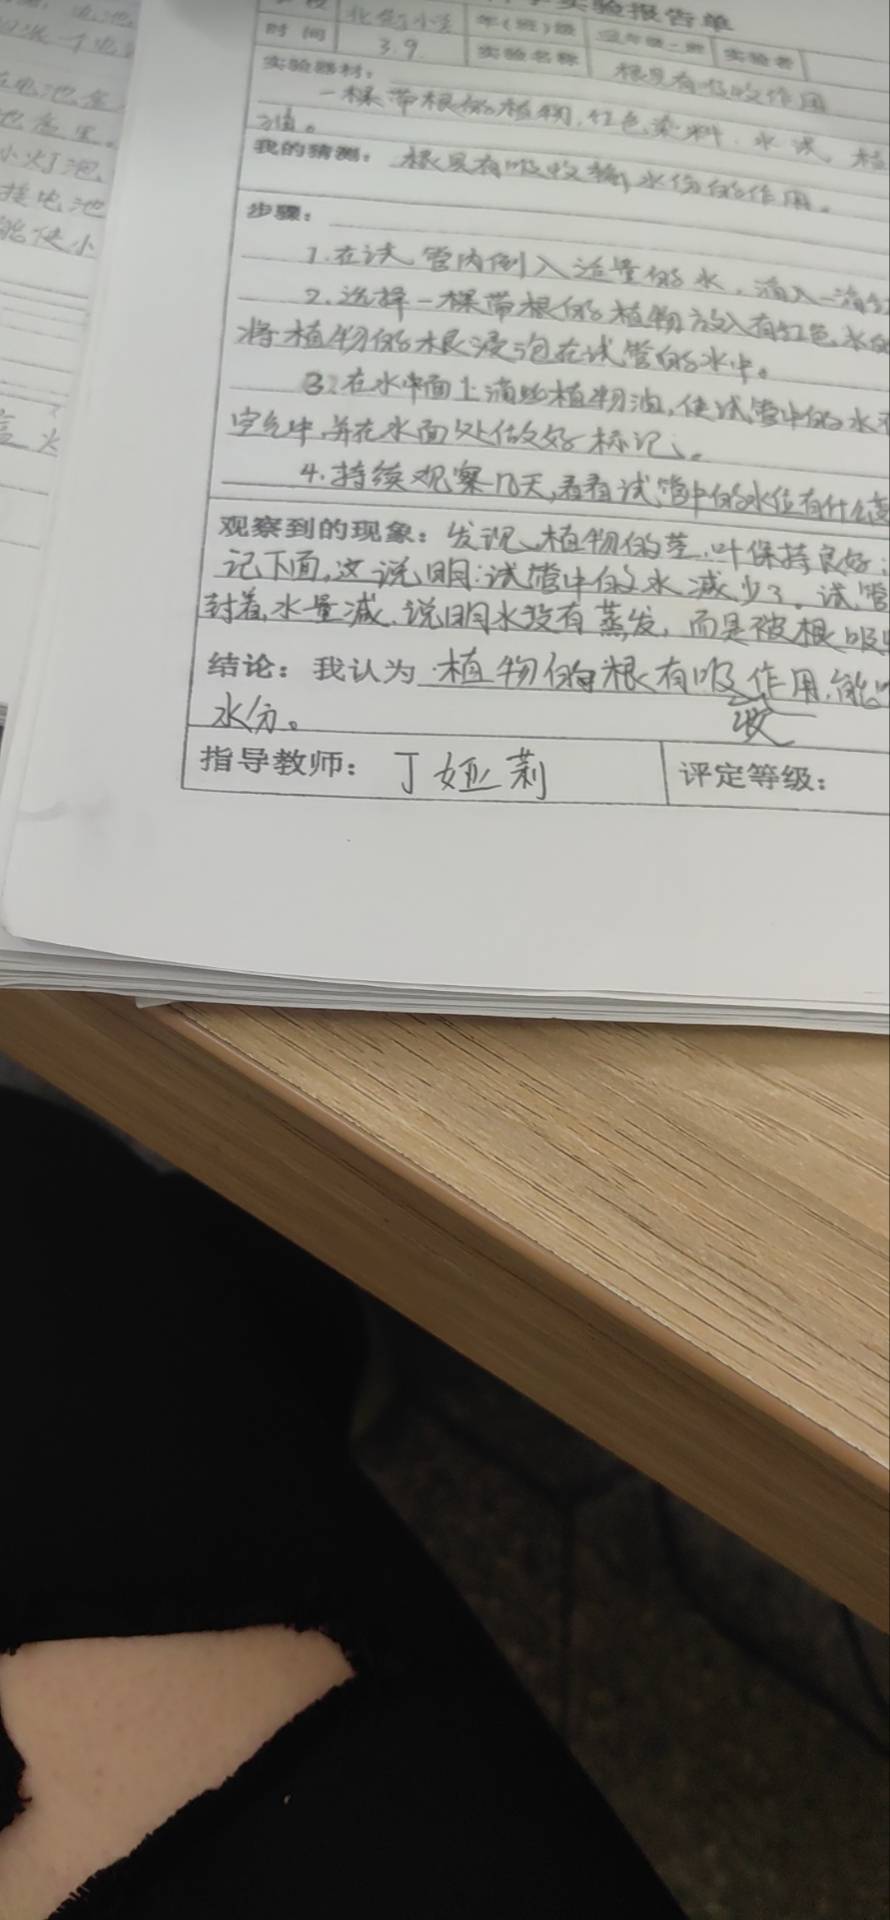 实验报告单
时间 3.9. 实验名称 根具有吸收作用
年(班)级 实验者
实验器材:
一棵带根的植物,红色染料、水、试
我的猜测: 根具有吸收 水份的作用。
步骤:
1.在试管内倒入适量的水,滴入一滴红
2.选择一棵带根的植物放入有红色水的
将植物的根浸泡在试管的水中。
3.在水面上滴些植物油,使试管中的水不
空气中,并在水面处做好标记。
4.持续观察几天,看看试管中的水位有什么变
观察到的现象:发现植物的茎、叶保持良好;
记下面,这说明:试管中的水减少了。试管
封着,水量减,说明水没有蒸发,而是被根吸
结论:我认为 植物的根有吸收作用,能
水分。
指导教师: 丁娅莉 评定等级:
小灯泡
接电池
能使小